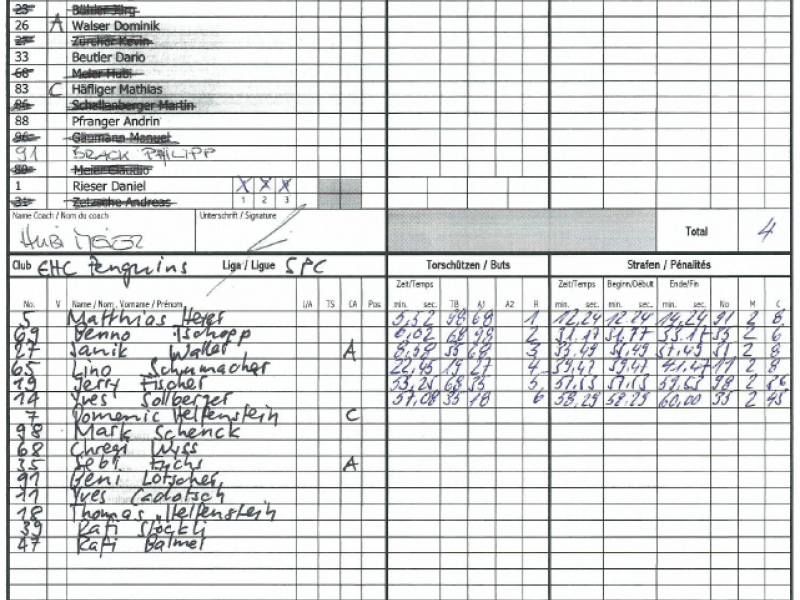 25 Bühler Jürg
26 A Walser Dominik
27 Zürcher Kevin
33 Beutler Dario
68 Meier Hubi
83 C Häfliger Mathias
86 Schallenberger Martin
88 Pfranger Andrin
96 Gäumann Manuel
91 BRACK PHILIPP
80 Meier Claudio
1 Rieser Daniel X X X
1 2 3
31 Zetzsche Andreas
Name Coach / Nom du coach Unterschrift / Signature Total 4
Hubi Meier
Club EHC Penguins Liga / Ligue SPC Torschützen / Buts Strafen / Pénalités
Zeit/Temps Zeit/Temps Beginn/Début Ende/Fin
No. V Name / Nom, Vorname / Prénom I/A TS CA Pos min. sec. TB A1 A2 R min. sec. min. sec. min. sec. No M C
5 Matthias 5,52 98 68 1 12,24 12.24 14,24 91 2 8
69 Benno Tschopp 6,02 68 98 2 2 6
27 Janik Walter A 8,58 35 68 3 2 8
65 Lino Schumacher 22,45 19 27 4 39,47 39,47 41.47 2 8
19 Jerry Fischer 53,25 68 35 5 57,53 57,53 59,53 98 2
14 Yves Sollberger 57,08 35 18 6 58,29 58,29 60,00 35 2 45
7 Domenic Helfenstein C
98 Mark Schenck
68 Chregi Wyss
35 Sebi Fuchs A
91 Beni Lötscher
11 Yves Cadotsch
18 Thomas Helfenstein
39 Rafi Stöckli
47 Rafi Balmer